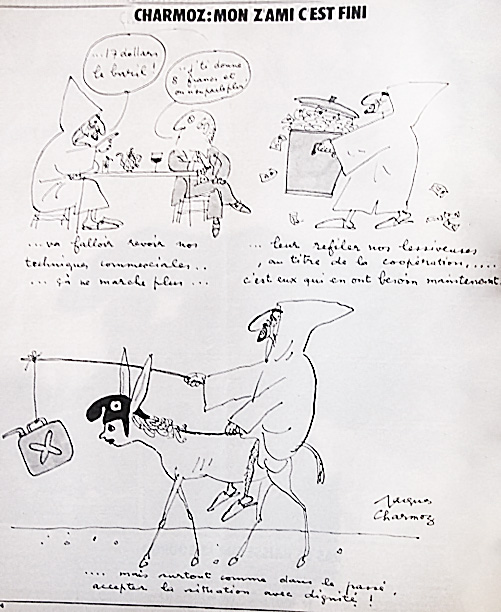 CHARMOZ: MON Z'AMI C'EST FINI
...17 dollars
le baril!
...j'te donne
8 francs et
on n'en parle plus
...va falloir revoir nos
techniques commerciales..
... çà ne marche plus ...
... leur refiler nos lessiveuses
, au titre de la coopération,....
c'est eux qui en ont besoin maintenant.
Jacques
Charmoz
.... mais surtout comme dans le passé,
accepter la situation avec dignité !